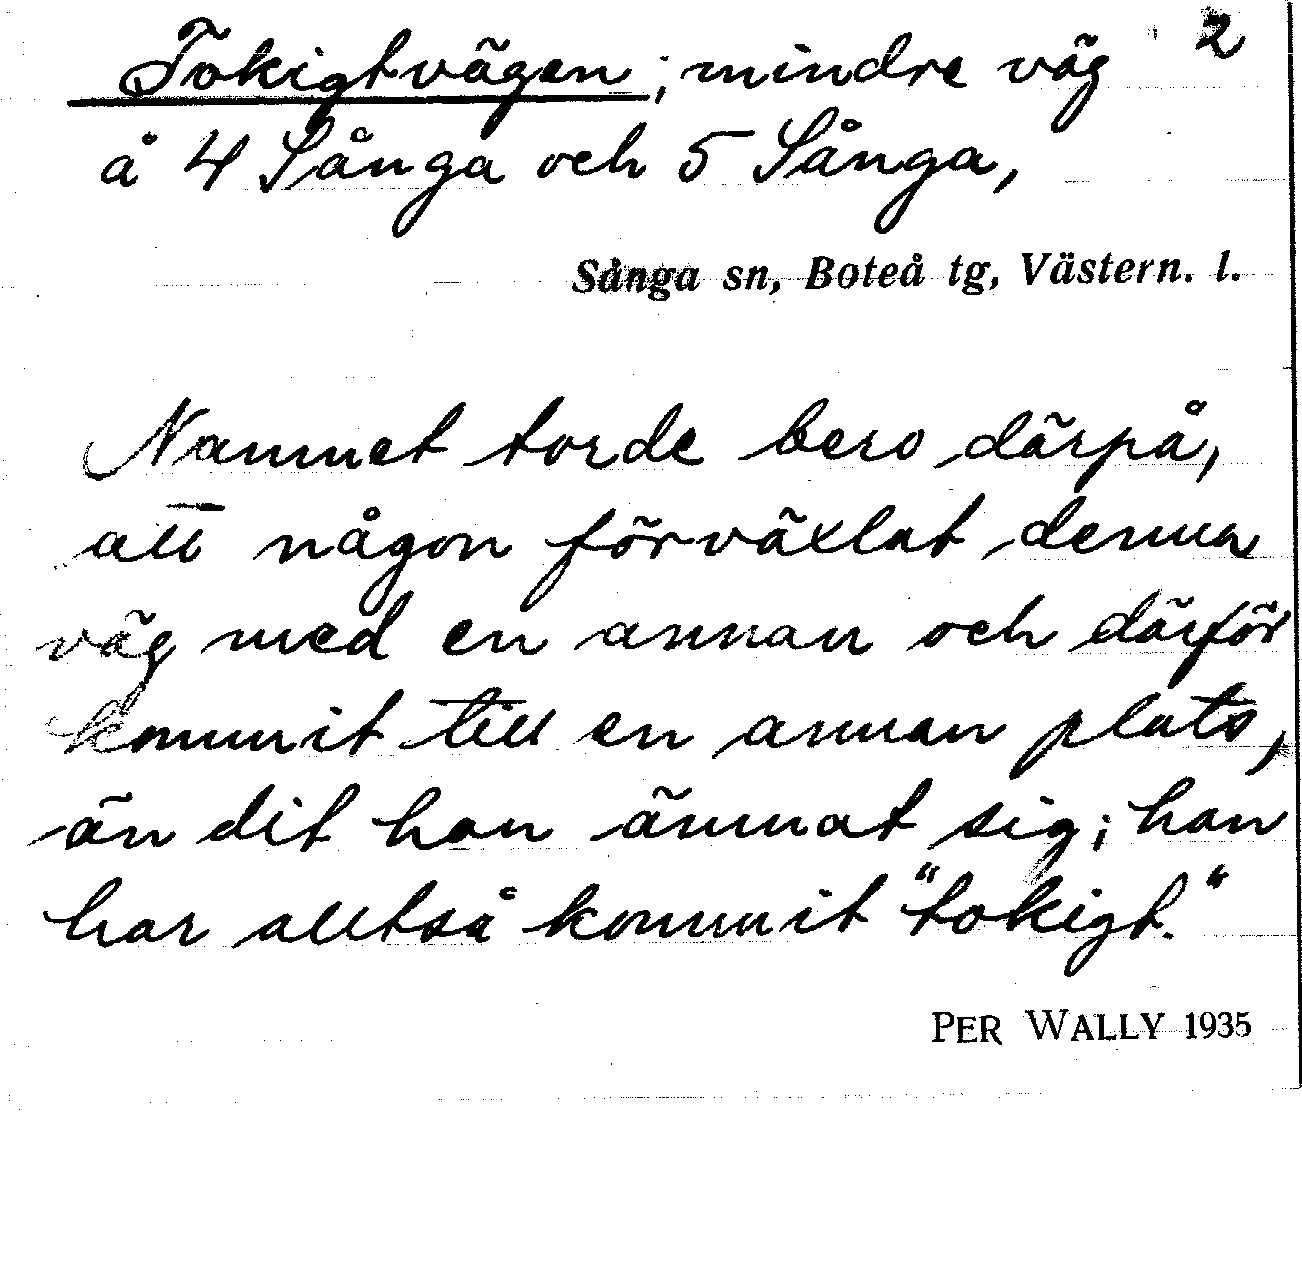 Tokigtvägen; mindre väg 2
å 4 Sånga och 5 Sånga,
Sånga sn, Boteå tg, Västern. l.
Namnet torde bero därpå,
att någon förväxlat denna
väg med en annan och därför
kommit till en annan plats,
än dit han ämnat sig; han
har alltså kommit "tokigt."
PER WALLY 1935